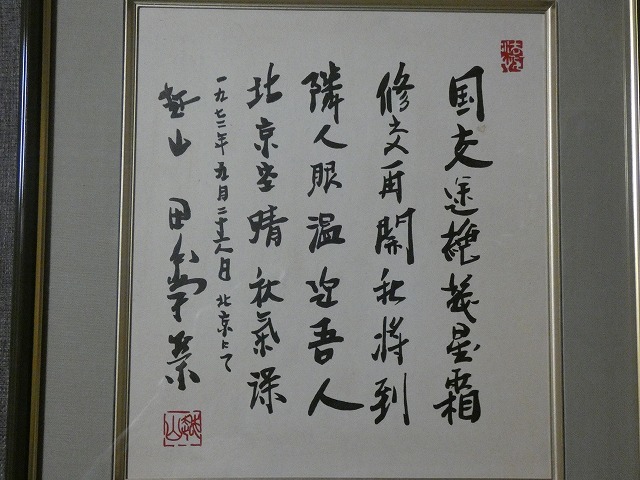 国交途絶幾星霜
修交再開秋将到
隣人眼温迎吾人
北京空晴秋氣深
一九七二年九月二十六日 北京にて
越山 田中角榮
越山